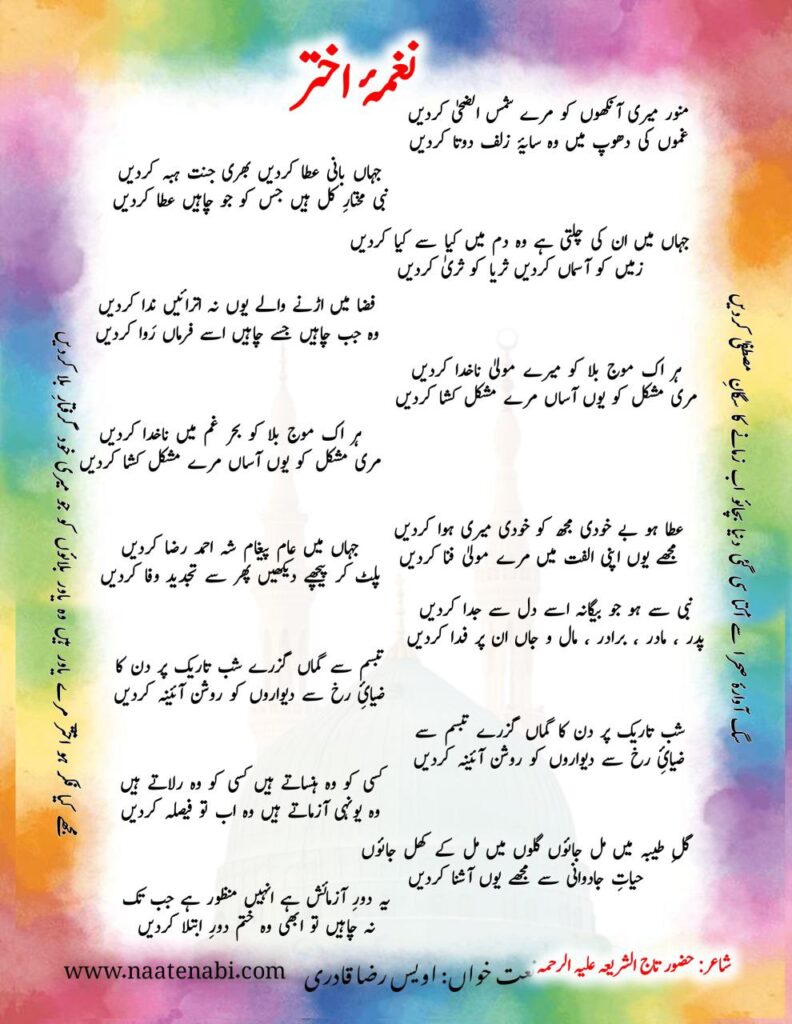 نغمۂ اختر
منور میری آنکھوں کو مرے شمس الضحیٰ کردیں
غموں کی دھوپ میں وہ سایۂ زلف دوتا کردیں
جہاں بانی عطا کردیں بھری جنت ہبہ کردیں
نبی مختارِ کل ہیں جس کو جو چاہیں عطا کردیں
جہاں میں ان کی چلتی ہے وہ دم میں کیا سے کیا کردیں
زمیں کو آسماں کردیں ثریا کو ثریٰ کردیں
فضا میں اڑنے والے یوں نہ اترائیں ندا کردیں
وہ جب چاہیں جسے چاہیں اسے فرماں روا کردیں
ہر اک موج بلا کو میرے مولیٰ ناخدا کردیں
مری مشکل کو یوں آساں مرے مشکل کشا کردیں
ہر اک موج بلا کو بحر غم میں ناخدا کردیں
مری مشکل کو یوں آساں مرے مشکل کشا کردیں
عطا ہو بے خودی مجھ کو خودی میری ہوا کردیں
مجھے یوں اپنی الفت میں مرے مولیٰ فنا کردیں
جہاں میں عام پیغام شہ احمد رضا کردیں
پلٹ کر پیچھے دیکھیں پھر سے تجدید وفا کردیں
نبی سے ہو جو بیگانہ اسے دل سے جدا کردیں
پدر ، مادر ، برادر ، مال و جاں ان پر فدا کردیں
تبسم سے گماں گزرے شب تاریک پر دن کا
ضیائِ رخ سے دیواروں کو روشن آئینہ کردیں
شب تاریک پر دن کا گماں گزرے تبسم سے
ضیائِ رخ سے دیواروں کو روشن آئینہ کردیں
کسی کو وہ ہنساتے ہیں کسی کو وہ رلاتے ہیں
وہ یونہی آزماتے ہیں وہ اب تو فیصلہ کردیں
گلِ طیبہ میں مل جائوں گلوں میں مل کے کھل جائوں
حیاتِ جاودانی سے مجھے یوں آشنا کردیں
یہ دورِ آزمائش ہے انہیں منظور ہے جب تک
نہ چاہیں تو ابھی وہ ختم دورِ ابتلا کردیں
سگ آوارۂ صحرا سے اکتا سی گئی دنیا بچائو اب زمانے کا سگانِ مصطفیٰ کردیں
مجھے کیا فکر ہو اختر مرے یاور ہیں وہ یاور بلائوں کو جو میری خود گرفتارِ بلا کردیں
شاعر: حضور تاج الشریعہ علیہ الرحمہ
نعت خواں: اویس رضا قادری
www.naatenabi.com